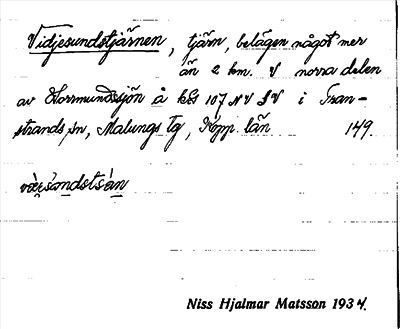 Vidjesundstjärnen, tjärn, belägen något mer
än 2 km. V norra delen
av Horrmundsjön å kbl 107 NV SV i Tran-
strands sn, Malungs tg, Kopp. län 149.
Niss Hjalmar Matsson 1934.